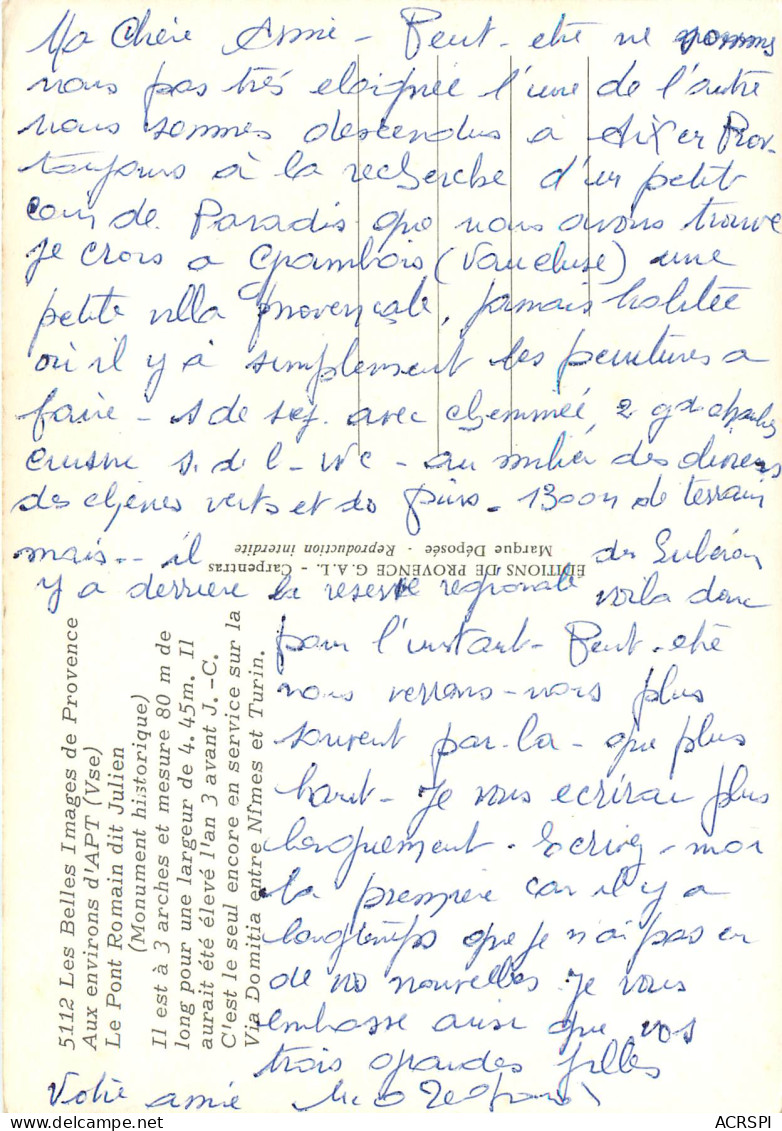 Ma Chère Amie - Peut-etre ne sommes
nous pas très eloignée l'une de l'autre
nous sommes descendus a Aix en Prov-
toujours à la recherche d'un petit
coin de Paradis que nous avons trouvé
je crois a Grambois (Vaucluse) une
petite villa provençale, jamais habitée
où il y à simplement les peintures a
faire - s de sej. avec cheminée, 2 gdes
cuisine s. de b - WC - au milieu des
des chènes verts et des pins - 1300m de terrain
mais -- il
y a derrière la reserve regionale
du Lubéron
voila donc
pour l'instant - Peut-etre
nous verrons-nous plus
souvent par-la - que plus
haut - Je vous ecrirai plus
longuement - Ecrivez-moi
la première car il y a
longtemps que je n'ai pas eu
de vos nouvelles. Je vous
embrasse ainsi que vos
trois grandes filles
Votre amie
ÉDITIONS DE PROVENCE G.A.L. - Carpentras
Marque Déposée - Reproduction interdite
5112 Les Belles Images de Provence
Aux environs d'APT (Vse)
Le Pont Romain dit Julien
(Monument historique)
Il est à 3 arches et mesure 80 m de
long pour une largeur de 4.45m. Il
aurait été élevé l'an 3 avant J.-C.
C'est le seul encore en service sur la
Via Domitia entre Nîmes et Turin.
ACRSPI